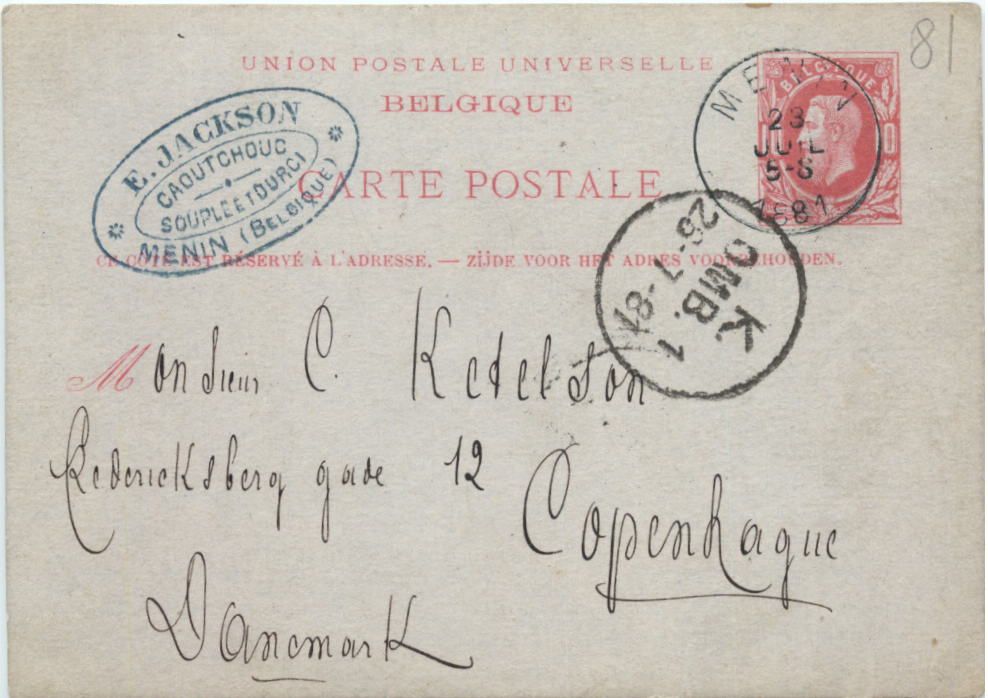 81
UNION POSTALE UNIVERSELLE
BELGIQUE
CARTE POSTALE
BELGIQUE
MENIN
23
JUIL
5-S
1881
E. JACKSON
CAOUTCHOUC
SOUPLE ET DURCI
MENIN (BELGIQUE)
CE CÔTÉ EST RÉSERVÉ À L'ADRESSE. — ZIJDE VOOR HET ADRES VOORBEHOUDEN.
K.
OMB. 1
26-7-81
Monsieur C. Ketelson
Redericksberg gade 12
Copenhague
Danemark